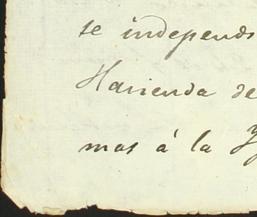 se independ
Hacienda de
mas á la